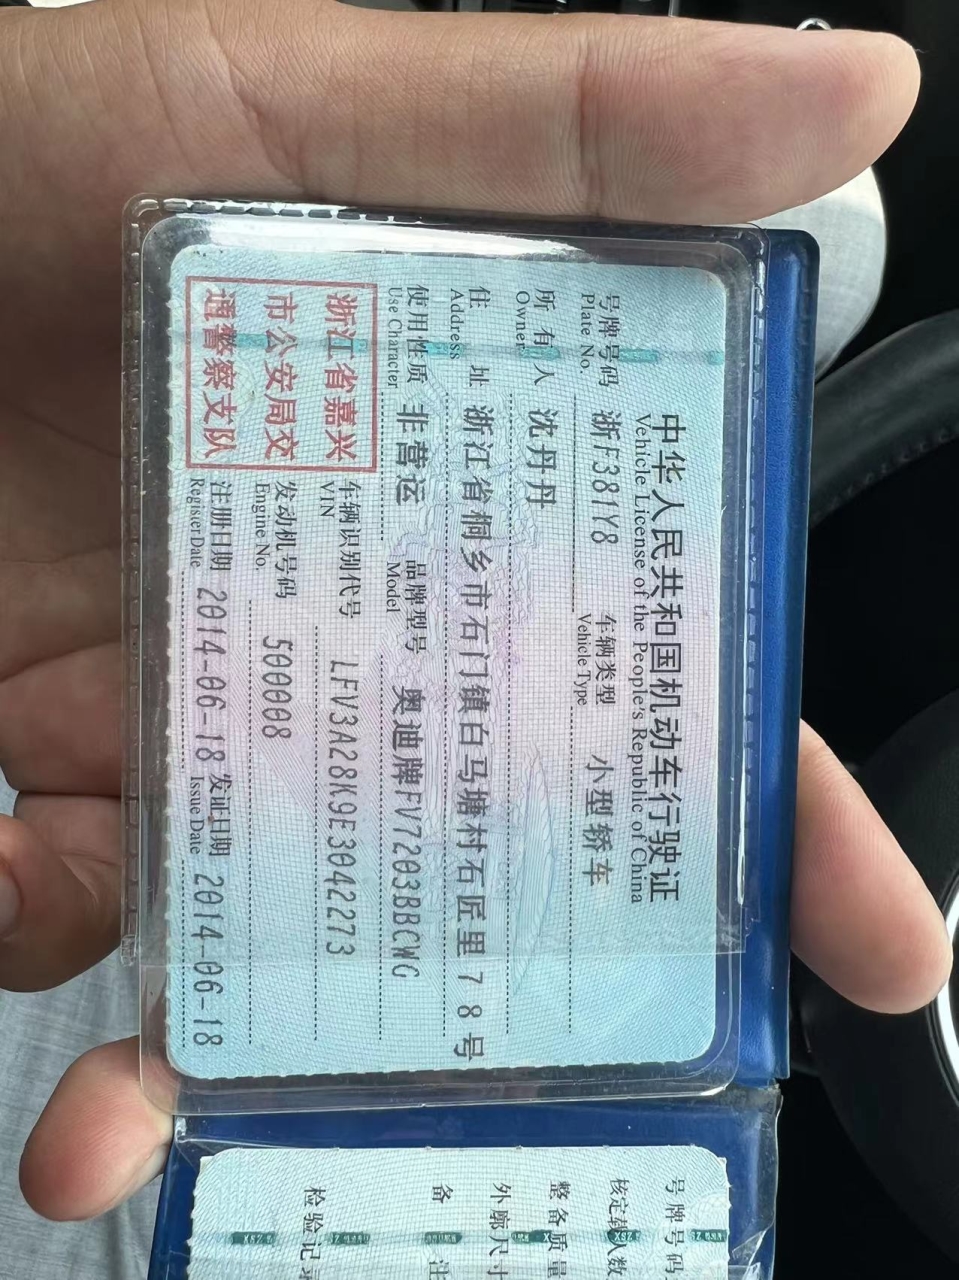 中华人民共和国机动车行驶证
Vehicle License of the People's Republic of China
号牌号码 浙F381Y8 车辆类型 小型轿车
Plate No. Vehicle Type
所有人 沈丹丹
Owner
住址 浙江省桐乡市石门镇白马塘村石匠里78号
Address
使用性质 非营运 品牌型号 奥迪牌FV7203BBCWG
Use Character Model
浙江省嘉兴
市公安局交
通警察支队
车辆识别代号 LFV3A28K9E3042273
VIN
发动机号码 500008
Engine No.
注册日期 2014-06-18 发证日期 2014-06-18
Register Date Issue Date
号牌号码
核定载人数
整备质量
外廓尺寸
备注
检验记